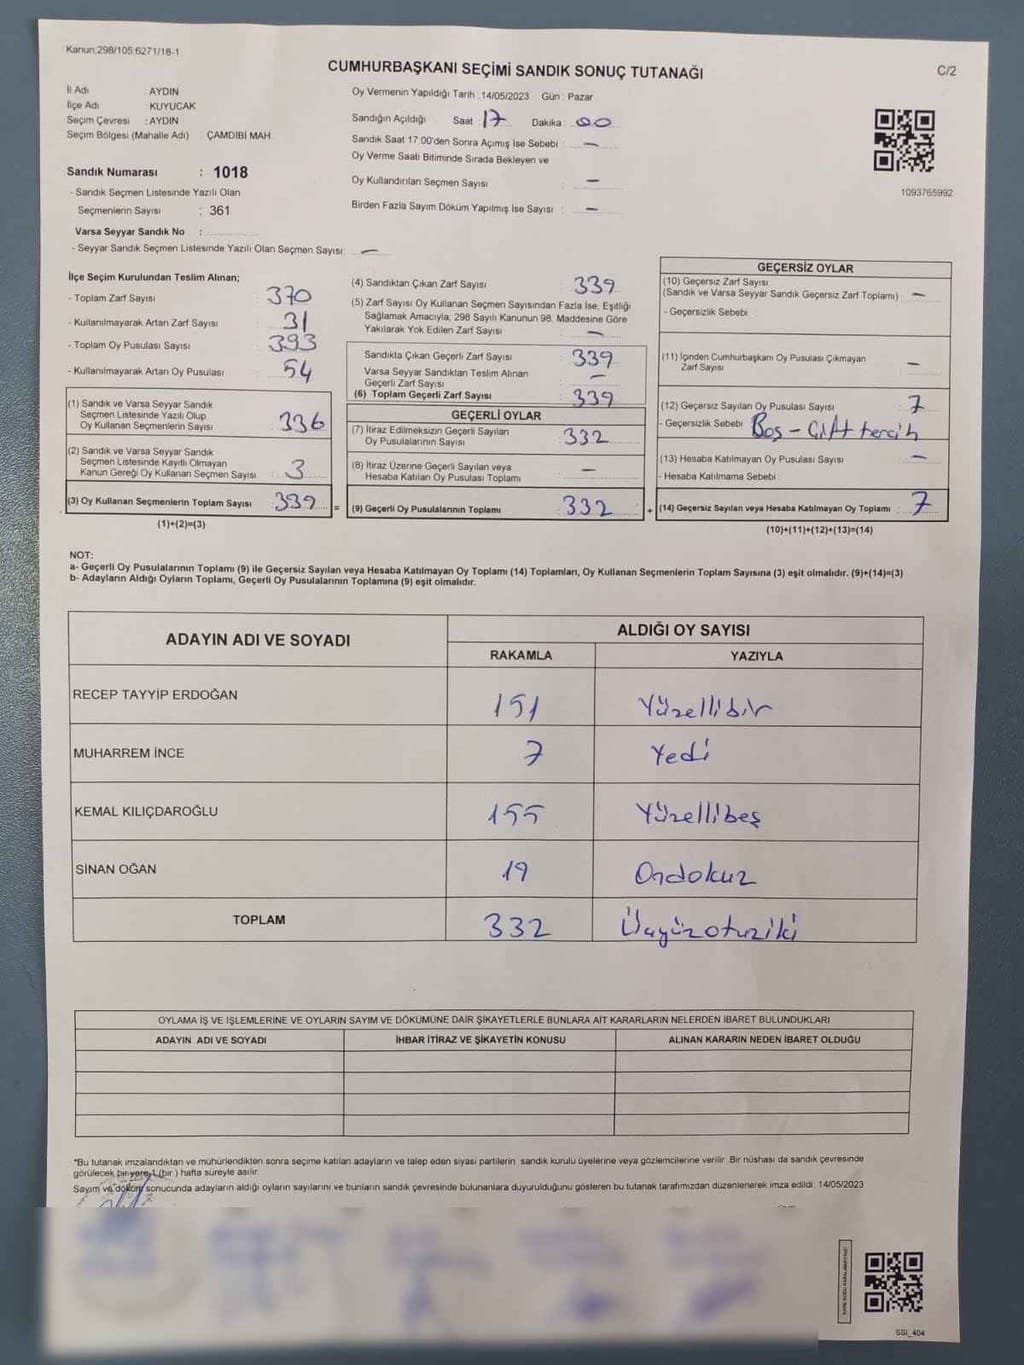 Kanun:298/105,6271/16-1
CUMHURBAŞKANI SEÇİMİ SANDIK SONUÇ TUTANAĞI
C/2
İl Adı AYDIN
İlçe Adı KUYUCAK
Seçim Çevresi : AYDIN
Seçim Bölgesi (Mahalle Adı) ÇAMDİBİ MAH.
Oy Vermenin Yapıldığı Tarih : 14/05/2023 Gün : Pazar
Sandığın Açıldığı Saat 17 Dakika : 00
Sandık Saat 17:00'den Sonra Açımış İse Sebebi : —
Oy Verme Saati Bitiminde Sırada Bekleyen ve
Oy Kullandırılan Seçmen Sayısı : —
Birden Fazla Sayım Döküm Yapılmış İse Sayısı : —
1093765992
Sandık Numarası : 1018
- Sandık Seçmen Listesinde Yazılı Olan
Seçmenlerin Sayısı : 361
Varsa Seyyar Sandık No :
- Seyyar Sandık Seçmen Listesinde Yazılı Olan Seçmen Sayısı: —
İlçe Seçim Kurulundan Teslim Alınan;
- Toplam Zarf Sayısı : 370
- Kullanılmayarak Artan Zarf Sayısı : 31
- Toplam Oy Pusulası Sayısı : 393
- Kullanılmayarak Artan Oy Pusulası : 54
(1) Sandık ve Varsa Seyyar Sandık
Seçmen Listesinde Yazılı Olup
Oy Kullanan Seçmenlerin Sayısı : 336
(2) Sandık ve Varsa Seyyar Sandık
Seçmen Listesinde Kayıtlı Olmayan
Kanun Gereği Oy Kullanan Seçmen Sayısı : 3
(3) Oy Kullanan Seçmenlerin Toplam Sayısı : 339 =
(1)+(2)=(3)
(4) Sandıktan Çıkan Zarf Sayısı : 339
(5) Zarf Sayısı Oy Kullanan Seçmen Sayısından Fazla İse, Eşitliği
Sağlamak Amacıyla; 298 Sayılı Kanunun 98. Maddesine Göre
Yakılarak Yok Edilen Zarf Sayısı : —
Sandıkta Çıkan Geçerli Zarf Sayısı : 339
Varsa Seyyar Sandıktan Teslim Alınan
Geçerli Zarf Sayısı : —
(6) Toplam Geçerli Zarf Sayısı : 339
GEÇERLİ OYLAR
(7) İtiraz Edilmeksizin Geçerli Sayılan
Oy Pusulalarının Sayısı : 332
(8) İtiraz Üzerine Geçerli Sayılan veya
Hesaba Katılan Oy Pusulası Toplamı : —
(9) Geçerli Oy Pusulalarının Toplamı : 332 +
GEÇERSİZ OYLAR
(10) Geçersiz Zarf Sayısı
(Sandık ve Varsa Seyyar Sandık Geçersiz Zarf Toplamı) : —
- Geçersizlik Sebebi :
(11) İçinden Cumhurbaşkanı Oy Pusulası Çıkmayan
Zarf Sayısı : —
(12) Geçersiz Sayılan Oy Pusulası Sayısı : 7
- Geçersizlik Sebebi : Boş - Çift tercih
(13) Hesaba Katılmayan Oy Pusulası Sayısı : —
- Hesaba Katılmama Sebebi :
(14) Geçersiz Sayılan veya Hesaba Katılmayan Oy Toplamı : 7
(10)+(11)+(12)+(13)=(14)
NOT:
a- Geçerli Oy Pusulalarının Toplamı (9) ile Geçersiz Sayılan veya Hesaba Katılmayan Oy Toplamı (14) Toplamları, Oy Kullanan Seçmenlerin Toplam Sayısına (3) eşit olmalıdır. (9)+(14)=(3)
b- Adayların Aldığı Oyların Toplamı, Geçerli Oy Pusulalarının Toplamına (9) eşit olmalıdır.
ADAYIN ADI VE SOYADI
ALDIĞI OY SAYISI
RAKAMLA YAZIYLA
RECEP TAYYİP ERDOĞAN 151 Yüzellibir
MUHARREM İNCE 7 Yedi
KEMAL KILIÇDAROĞLU 155 Yüzellibeş
SİNAN OĞAN 19 Ondokuz
TOPLAM 332 Üçyüzotuziki
OYLAMA İŞ VE İŞLEMLERİNE VE OYLARIN SAYIM VE DÖKÜMÜNE DAİR ŞİKAYETLERLE BUNLARA AİT KARARLARIN NELERDEN İBARET BULUNDUKLARI
ADAYIN ADI VE SOYADI İHBAR İTİRAZ VE ŞİKAYETİN KONUSU ALINAN KARARIN NEDEN İBARET OLDUĞU
*Bu tutanak imzalandıktan ve mühürlendikten sonra seçime katılan adayların ve talep eden siyasi partilerin sandık kurulu üyelerine veya gözlemcilerine verilir. Bir nüshası da sandık çevresinde
görülecek bir yere 1 (bir ) hafta süreyle asılır.
Sayım ve döküm sonucunda adayların aldığı oyların sayılarını ve bunların sandık çevresinde bulunanlara duyurulduğunu gösteren bu tutanak tarafımızdan düzenlenerek imza edildi. 14/05/2023
SSI_404